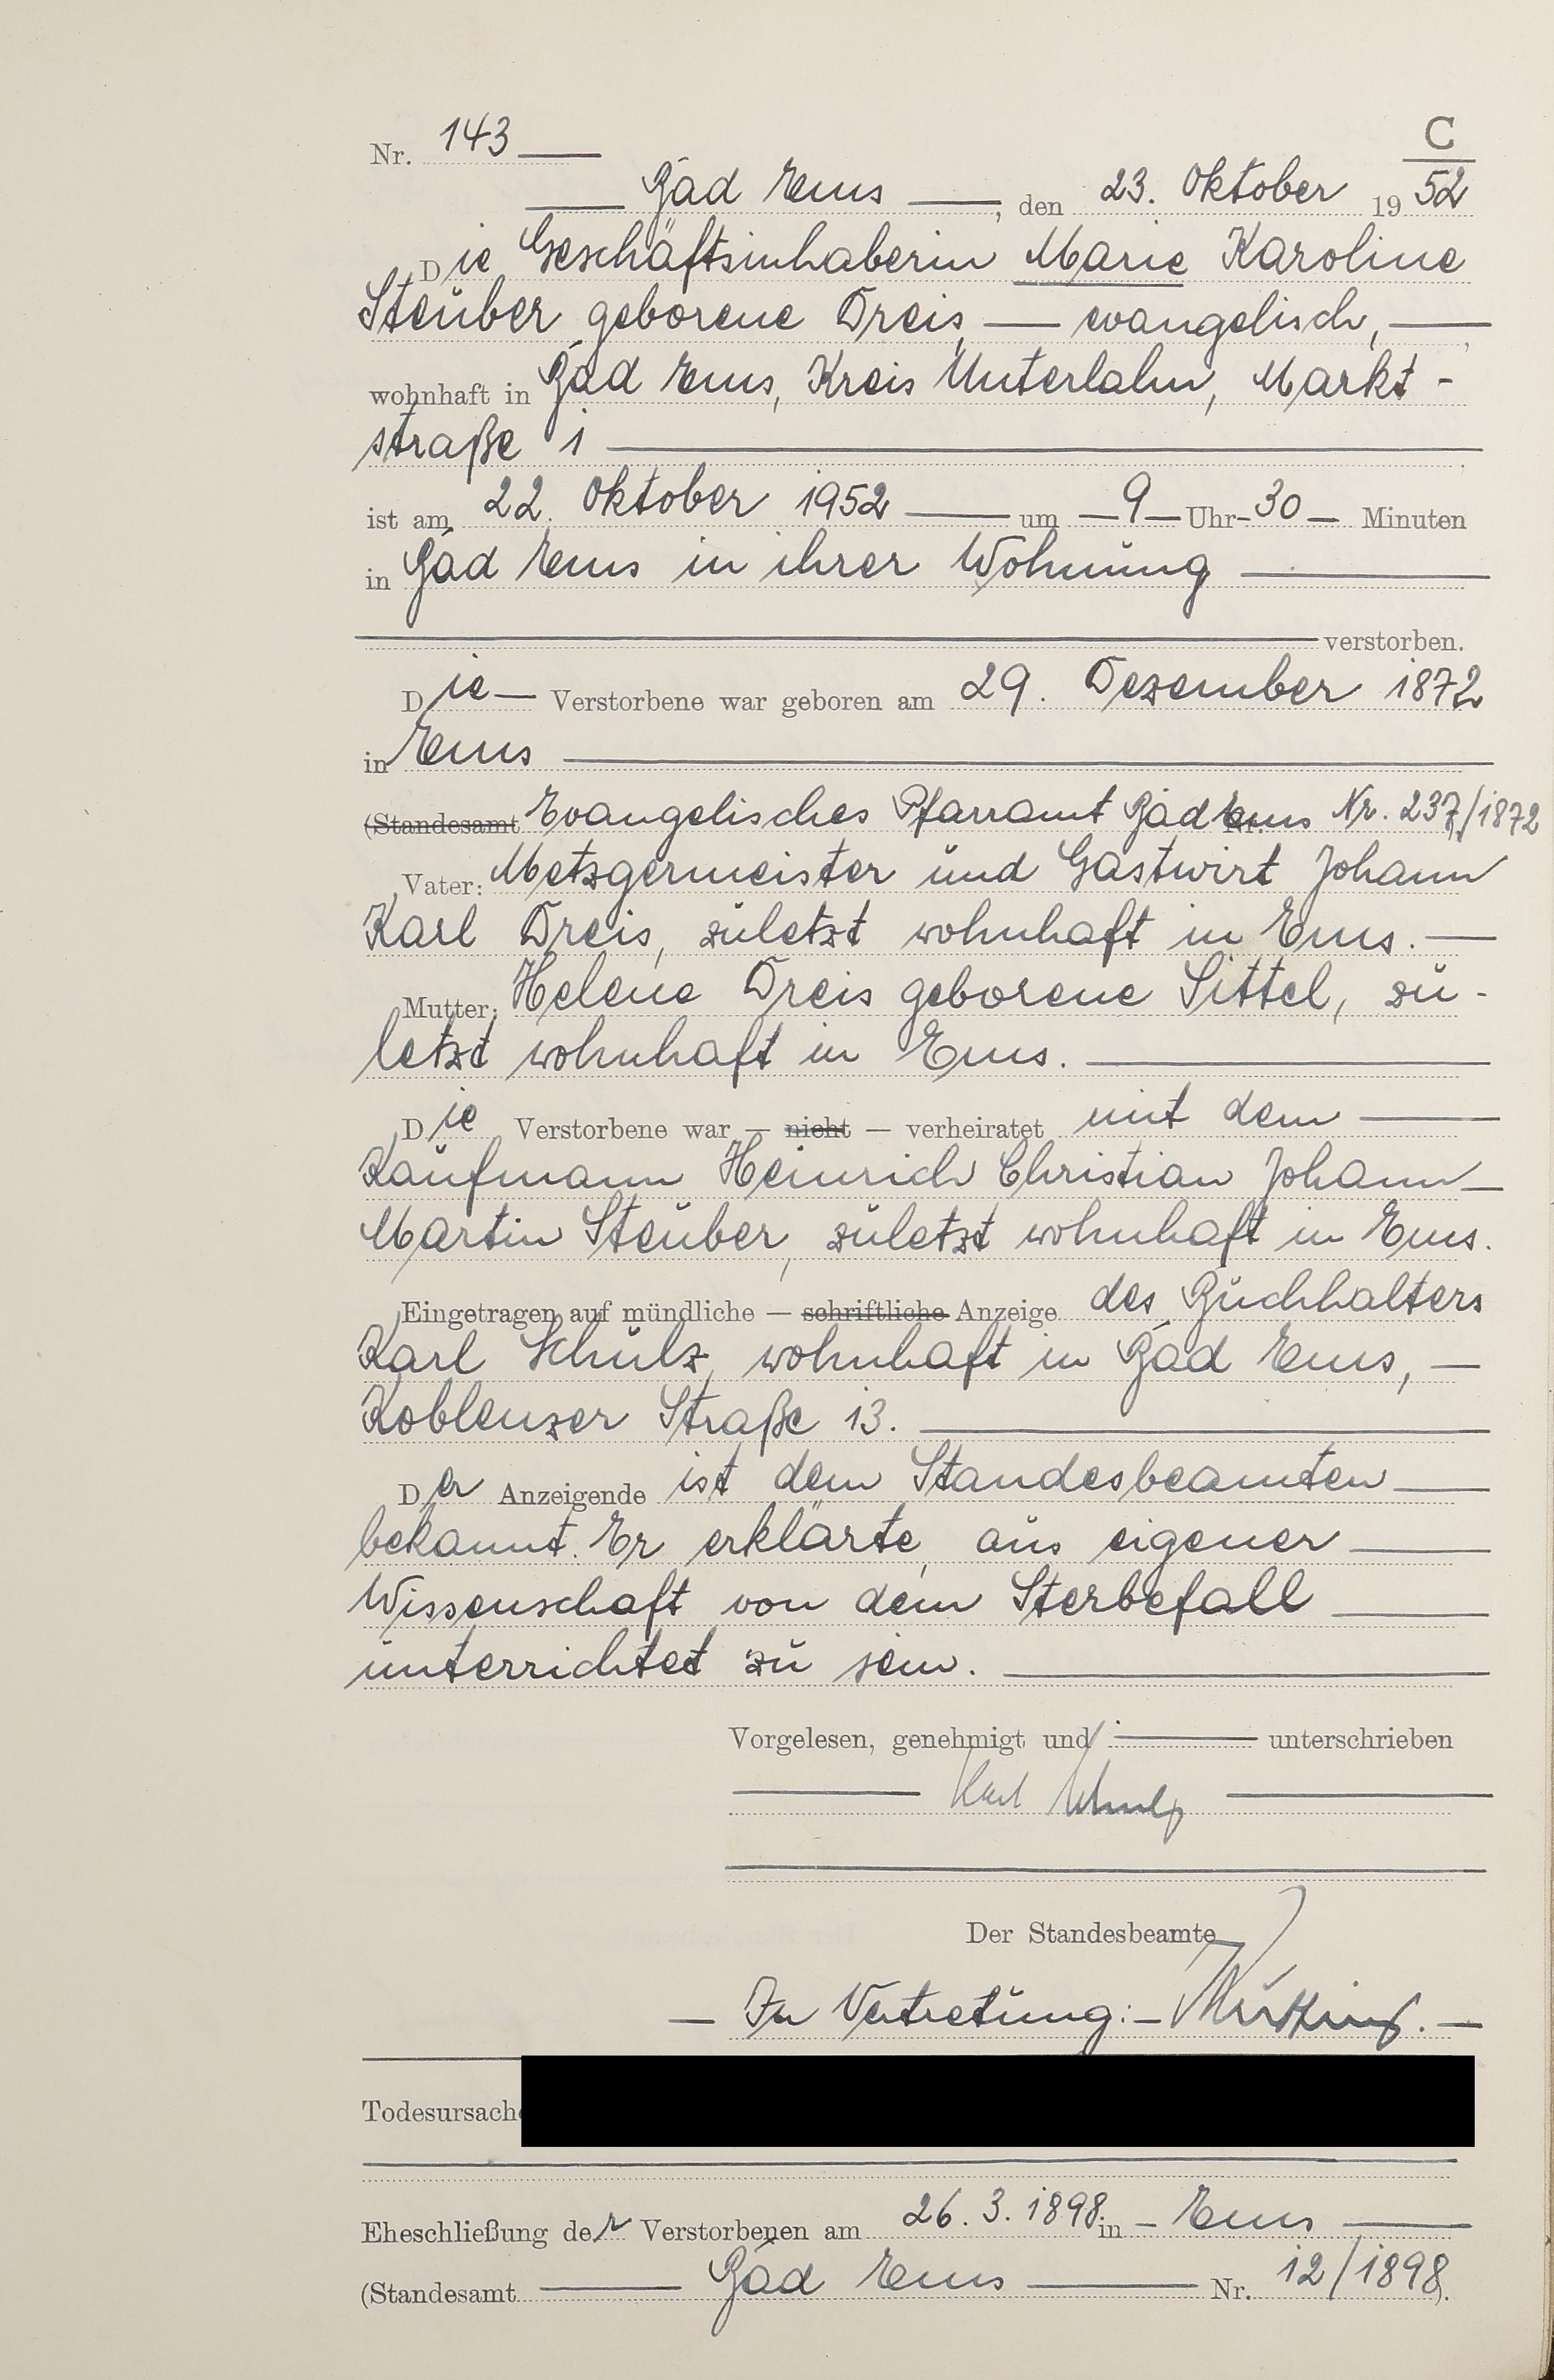 C
Nr. 143
Bad Ems, den 23. Oktober 1952
Die Geschäftsinhaberin Marie Karoline
Steuber geborene Dreis, — evangelisch, —
wohnhaft in Bad Ems, Kreis Unterlahn, Markt-
straße 1
ist am 22. Oktober 1952 — um — 9 — Uhr — 30 — Minuten
in Bad Ems in ihrer Wohnung
verstorben.
Die — Verstorbene war geboren am 29. Dezember 1872
in Ems
(Standesamt Evangelisches Pfarramt Bad Ems Nr. 237/1872
Vater: Metzgermeister und Gastwirt Johann
Karl Dreis, zuletzt wohnhaft in Ems. —
Mutter: Helene Dreis geborene Sittel, zu-
letzt wohnhaft in Ems.
Die Verstorbene war — nicht — verheiratet mit dem
Kaufmann Heinrich Christian Johann
Martin Steuber, zuletzt wohnhaft in Ems.
Eingetragen auf mündliche — schriftliche Anzeige des Buchhalters
Karl Schulz, wohnhaft in Bad Ems, —
Koblenzer Straße 13.
Der Anzeigende ist dem Standesbeamten
bekannt. Er erklärte, aus eigener
Wissenschaft von dem Sterbefall
unterrichtet zu sein.
Vorgelesen, genehmigt und unterschrieben
Karl Schulz
Der Standesbeamte
— In Vertretung: —
Todesursache
Eheschließung der Verstorbenen am 26.3.1898 in — Ems
(Standesamt Bad Ems Nr. 12/1898).